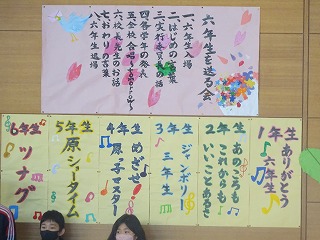 六年生を送る会
一、六年生入場
二、はじめの言葉
三、実行委員長の話
四、各学年の発表
五、全校合唱～tomorrow～
六、校長先生のお話
七、おわりの言葉
八、六年生退場
1年生
ありがとう
六年生
2年生
あのころも
これからも
いいことあるさ
3年生
ジャンボリ
三年生
4年生
めざせ
原っ子マスター
5年生
原ショータイム
6年生
ツナグ